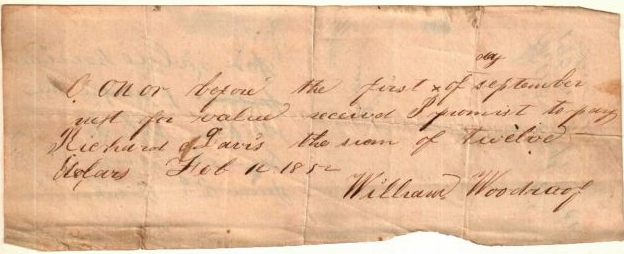 day
on or before the first x of september
next for value received I promist to pay
Richard Davis the sum of twelve
Dolars Feb 1852
William Woodruof